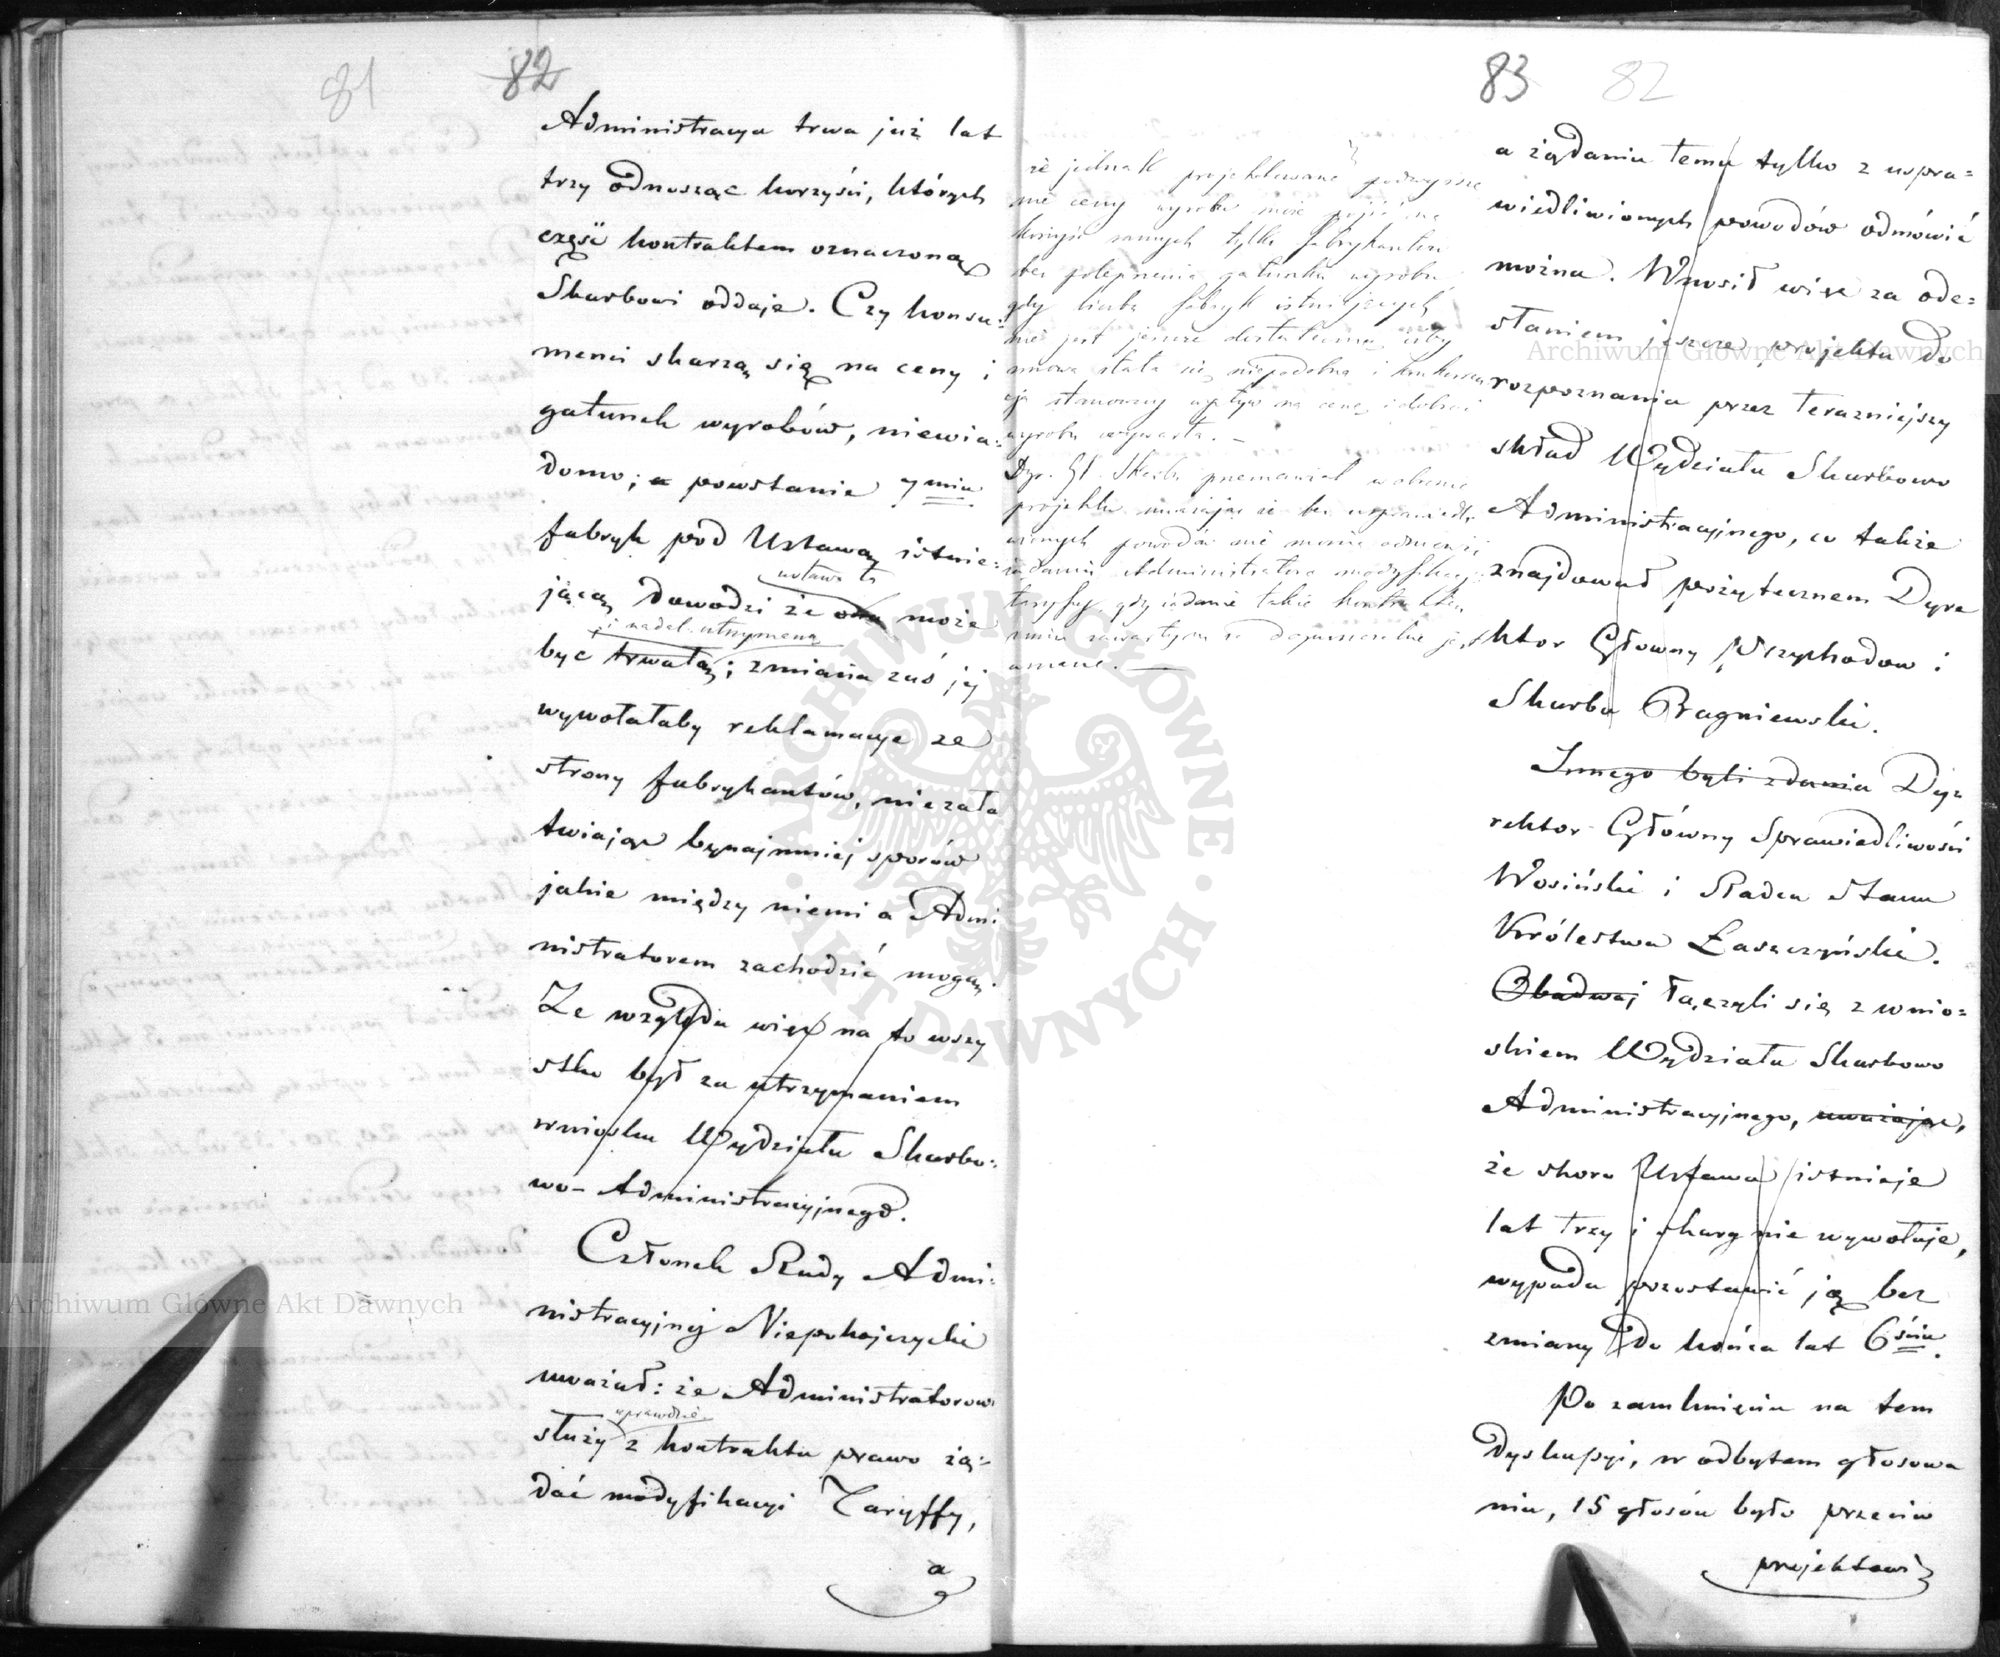 81 82
Administracya trwa już lat
trzy odnosząc korzyści, których
część kontraktem oznaczoną
Skarbowi oddaje. Czy konsu-
menci skarzą się na ceny i
gatunek wyrobów, niewia-
domo; a powstanie 7miu
fabryk pod Ustawą istnie-
ustawa ta
jącą dowodzi że ona może
i nadal utrzymaną
być trwałą; zmiana zaś jej
wywołałaby reklamacye ze
strony fabrykantów, niezała
twiając bynajmniej sporów
jakie między niemi a Admi
nistratorem zachodzić mogą,
Ze względu więc na to wszy
stko był za utrzymaniem
wniosku Wydziału Skarbo-
wo-Administracyjnego.
Członek Rady Admi-
nistracyjnej Niepokojczycki
uważał: że Administratorowi
wprawdzie
służy z kontraktu prawo żą-
dać modyfikacyi Taryffy,
a
że jednak projektowane podwyższe
nie ceny wyrobu może pójść na
korzyść samych tylko fabrykantów
bez polepszenia gatunku wyrobu
gdy liczba fabryk istniejących
nie jest jeszcze dostateczna, aby
zmowa stała się niepodobną i konkuren
cja stanowczy wpływ na cenę i dobroć
wyrobu wywarła. —
Dyr. Gł. Skarbu przemawiał w obronie
projektu uważając że bez usprawiedli
wionych powodów nie można odmówić
żądaniu Administratora modyfikacji
taryfy, gdy żądanie takie kontraktem
z nim zawartym za dopuszczalne jest
uznane. —
83 82
a żądaniu temu tylko z uspra-
wiedliwionych powodów odmówić
można. Wnosił więc za ode-
słaniem jeszcze projektu do
rozpoznania przez teraźniejszy
skład Wydziału Skarbowo
Administracyjnego, co także
znajdował pożytecznem Dyre
ktor Główny Przychodow i
Skarbu Bagniewski.
Innego byli zdania Dy-
rektor Główny Sprawiedliwości
Wosiński i Radca Stanu
Królestwa Łaszczyński.
Obadwaj łączyli się z wnio-
skiem Wydziału Skarbowo
Administracyjnego, uważając,
że skoro Ustawa istnieje
lat trzy i skarg nie wywołuje,
wypada pozostawić ją bez
zmiany do końca lat 6ściu.
Po zamknięciu na tem
dyskusyi, w odbytem głosowa
niu, 15 głosów było przeciw
projektowi
Archiwum Główne Akt Dawnych
Archiwum Główne Akt Dawnych
ARCHIWUM GŁÓWNE
AKT DAWNYCH